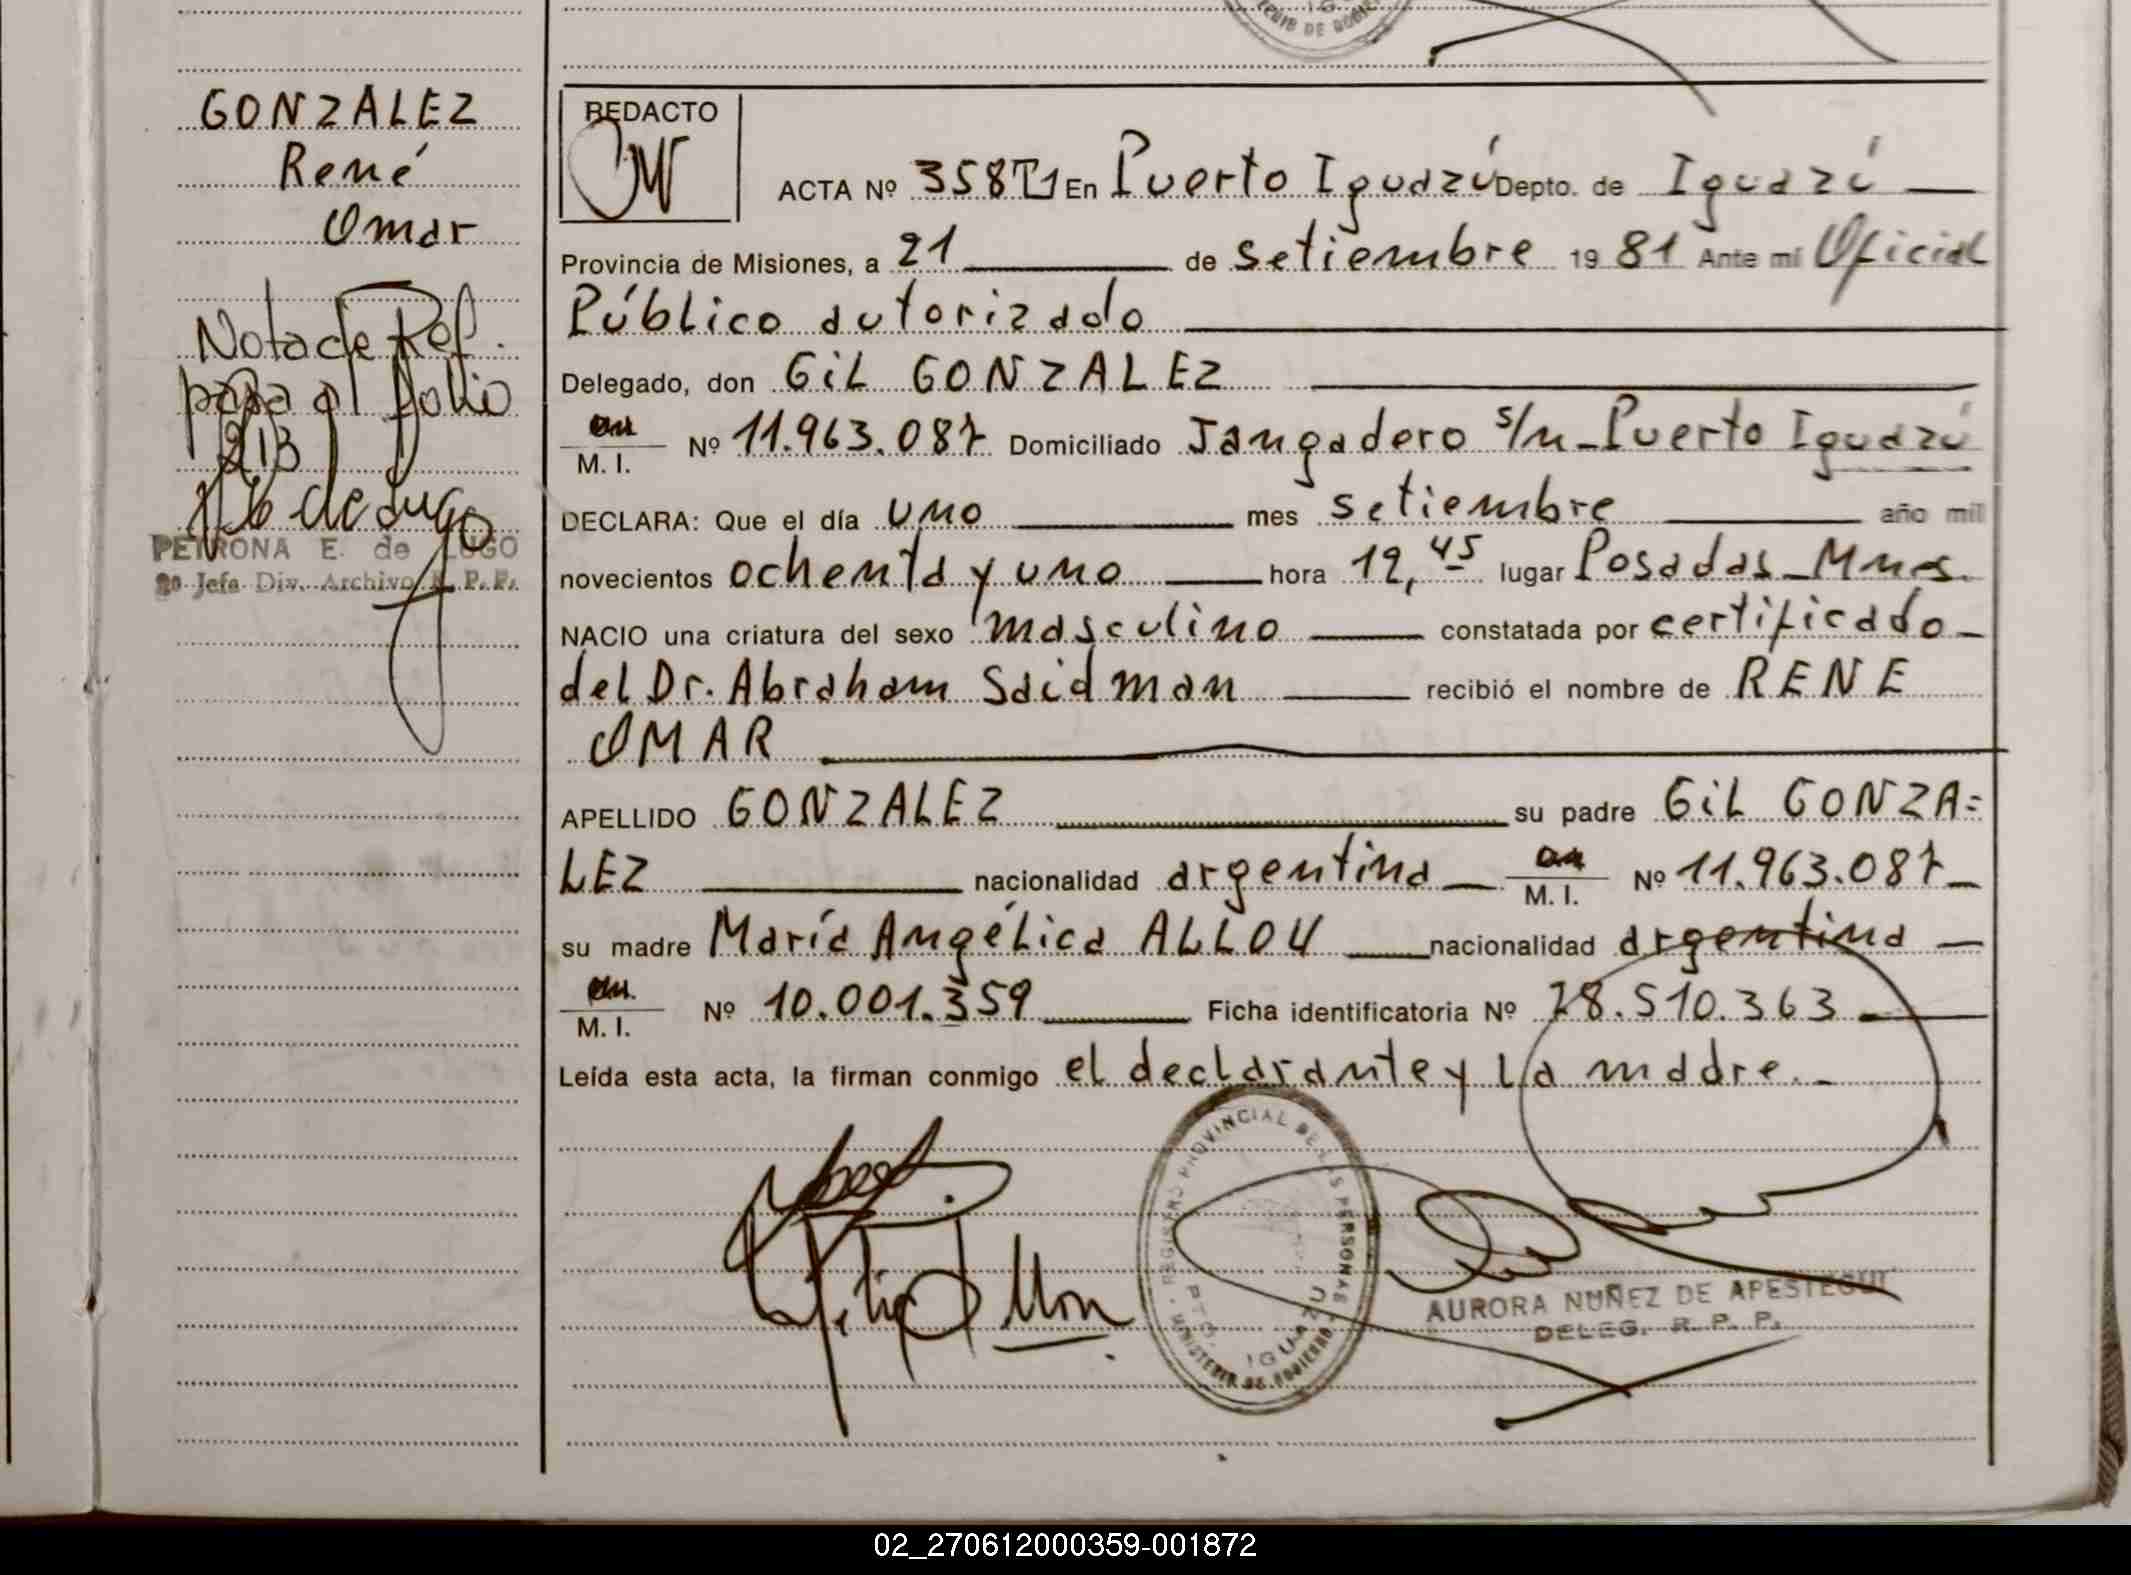 GONZALEZ
René
Omar
Nota de Ref.
pasa al folio
213
PETRONA E. de LUGO
Jefa Div. Archivo R. P. P.
REDACTO
ACTA Nº 358T1 En Puerto Iguazú Depto. de Iguazú
Provincia de Misiones, a 21 de setiembre 1981 Ante mí Oficial
Público autorizado
Delegado, don GiL GONZALEZ
M. I. Nº 11.963.087 Domiciliado Jangadero s/n - Puerto Iguazú
DECLARA: Que el día uno mes setiembre año mil
novecientos ochenta y uno hora 12,45 lugar Posadas - Mnes.
NACIO una criatura del sexo masculino constatada por certificado
del Dr. Abraham Saidman recibió el nombre de RENE
OMAR
APELLIDO GONZALEZ su padre GiL GONZA=
LEZ nacionalidad argentina M. I. Nº 11.963.087
su madre María Angélica ALLOU nacionalidad argentina
M. I. Nº 10.001.359 Ficha identificatoria Nº 28.510.363
Leída esta acta, la firman conmigo el declarante y la madre.
REGISTRO PROVINCIAL DE LAS PERSONAS
PTO. IGUAZU
MINISTERIO DE GOBIERNO
AURORA NUÑEZ DE APESTEGUI
DELEG. R. P. P.
02_270612000359-001872